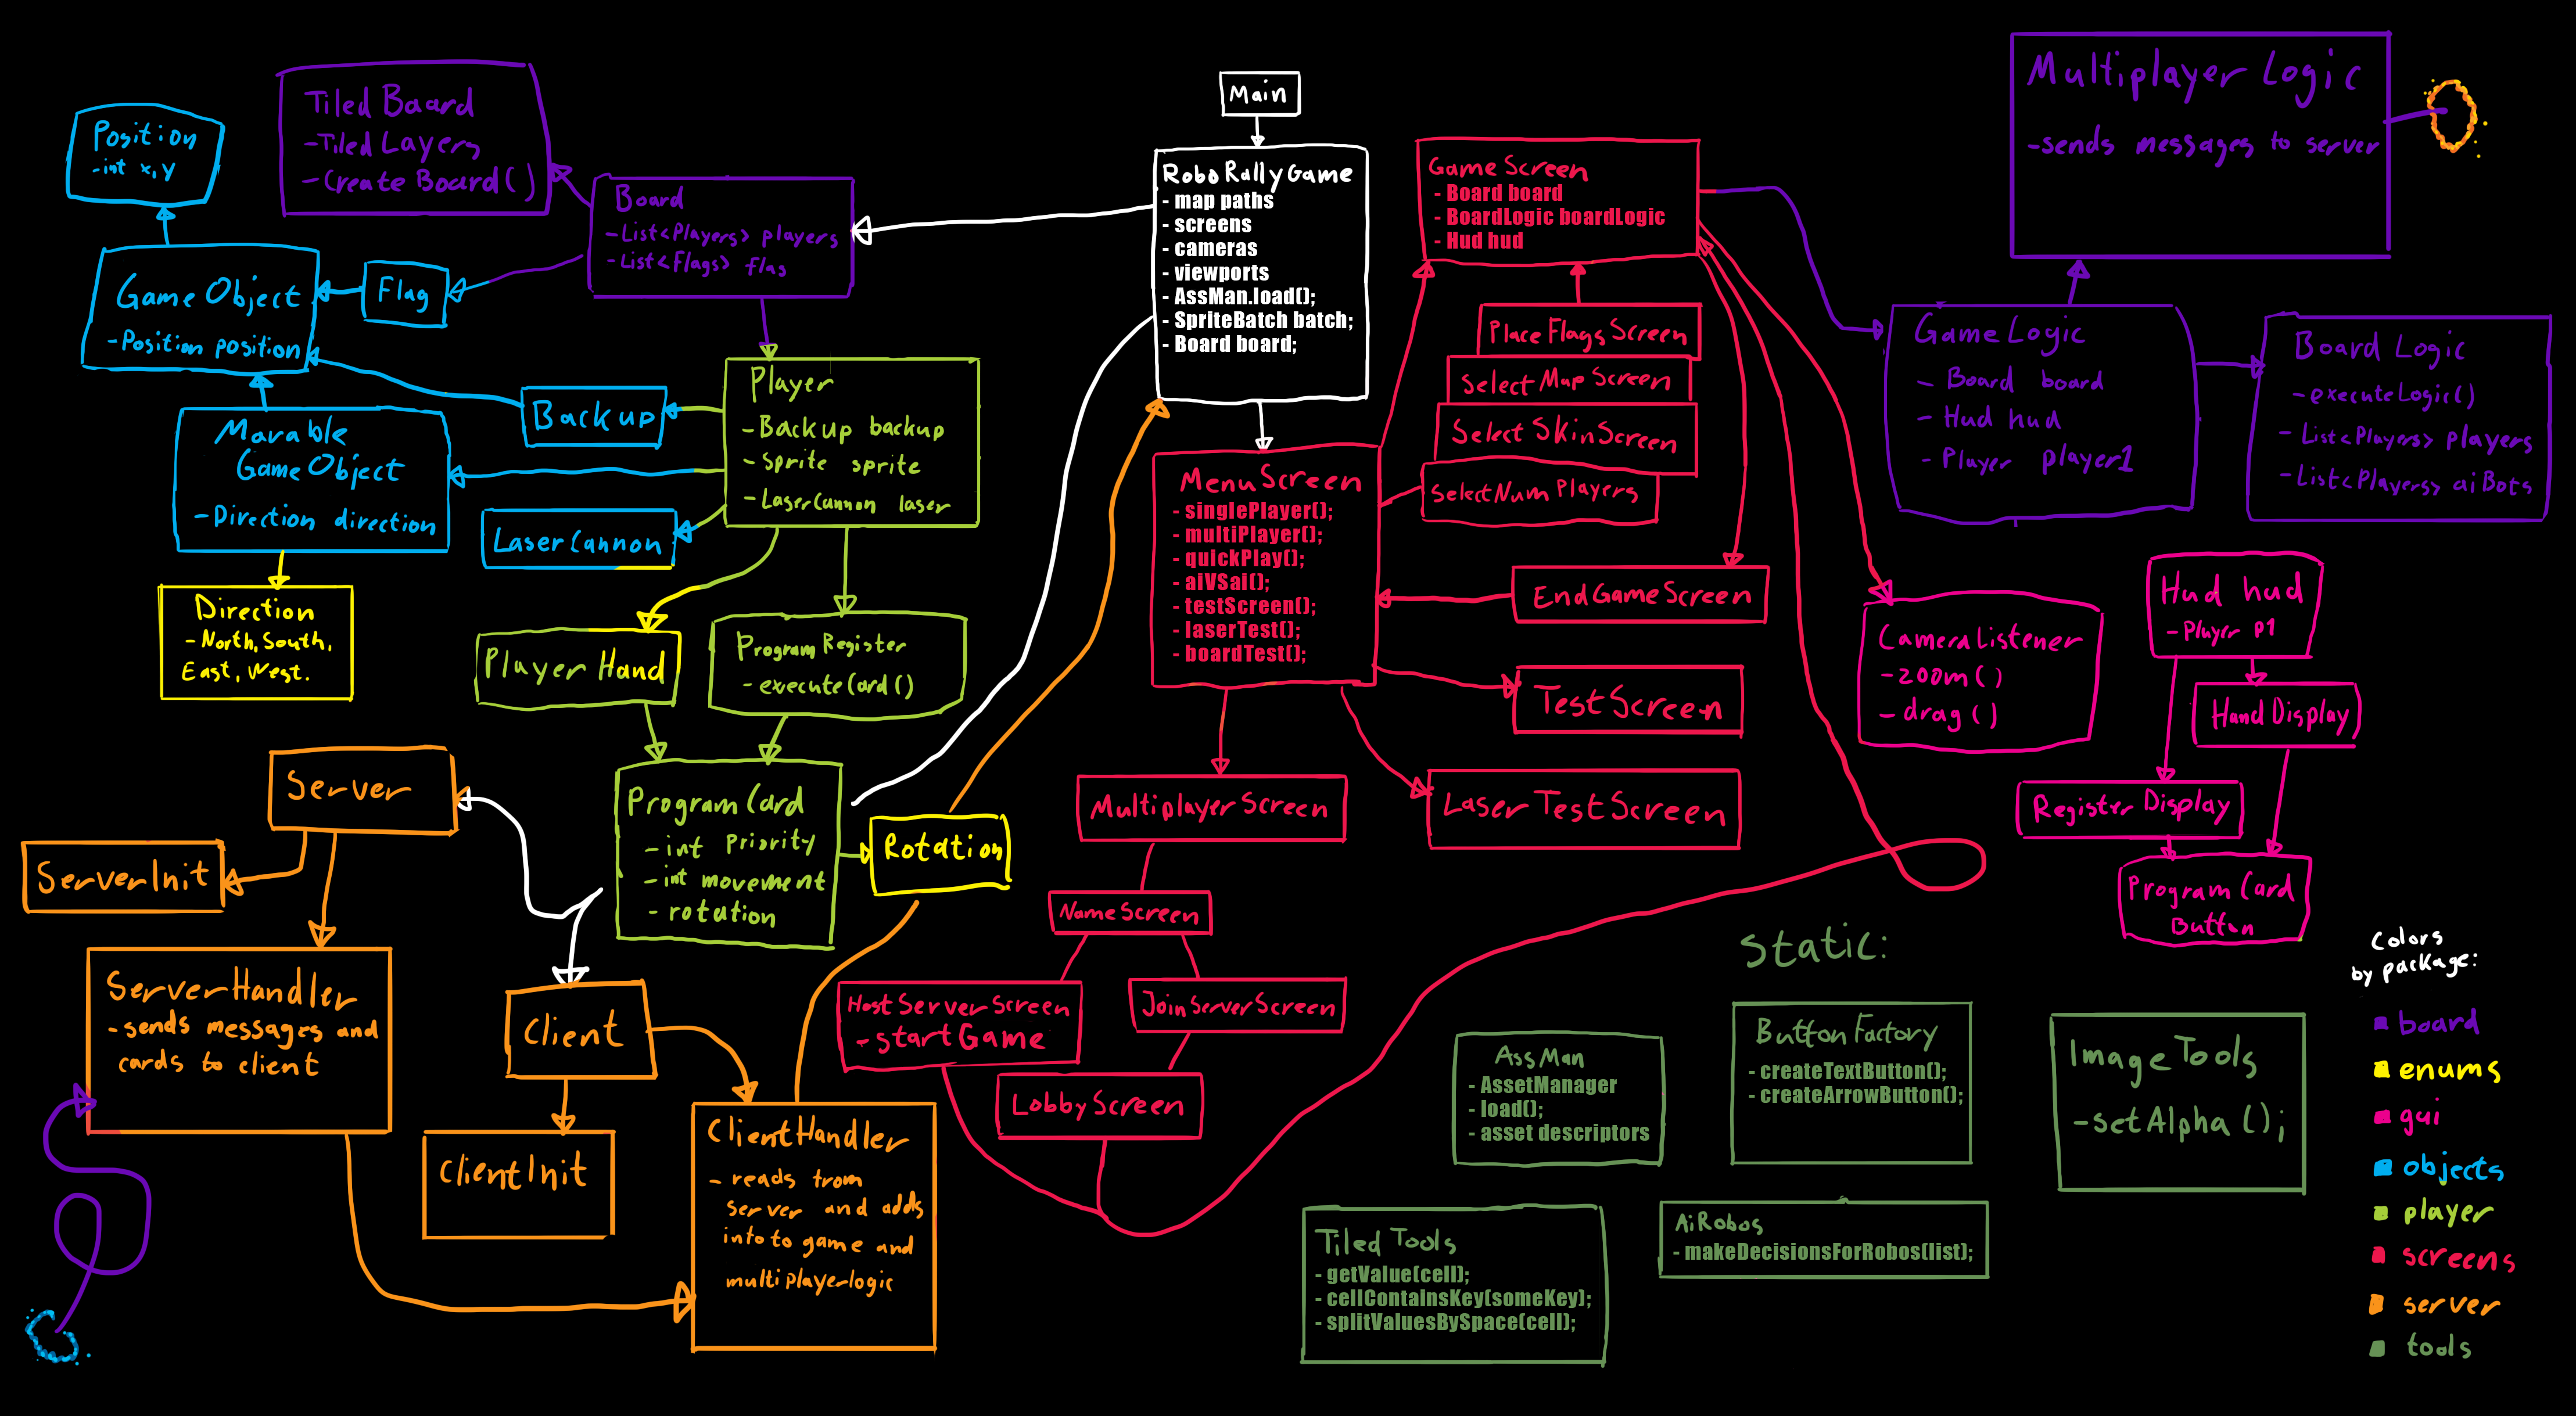 Main
RoboRallyGame
- map paths
- screens
- cameras
- viewports
- AssMan.load();
- SpriteBatch batch;
- Board board;
Tiled Board
- Tiled Layers
- Create Board()
Position
- int x,y
Board
- List<Players> players
- List<Flags> flag
Game Object
- Position position
Flag
Backup
Movable
Game Object
- Direction direction
Laser Cannon
Direction
- North, South,
East, West.
Player
- Backup backup
- Sprite sprite
- LaserCannon laser
Player Hand
Program Register
- executeCard()
Program Card
- int Priority
- int movement
- rotation
Rotation
Server
ServerInit
ServerHandler
- sends messages and
cards to client
Client
ClientInit
ClientHandler
- reads from
server and adds
into to game and
multiplayerlogic
Game Screen
- Board board
- BoardLogic boardLogic
- Hud hud
Place Flags Screen
Select Map Screen
Select SkinScreen
Select Num Players
Menu Screen
- singlePlayer();
- multiPlayer();
- quickPlay();
- aiVSai();
- testScreen();
- laserTest();
- boardTest();
EndGameScreen
TestScreen
Laser TestScreen
Multiplayer Screen
NameScreen
HostServerScreen
- startGame
JoinServerScreen
LobbyScreen
Multiplayer Logic
- sends messages to server
Game Logic
- Board board
- Hud hud
- Player player1
Board Logic
- executeLogic()
- List<Players> players
- List<Players> aiBots
Camera Listener
- zoom()
- drag()
Hud hud
- Player p1
Hand Display
Register Display
Program Card
Button
Static:
AssMan
- AssetManager
- load();
- asset descriptors
Button Factory
- createTextButton();
- createArrowButton();
Image Tools
- setAlpha();
Tiled Tools
- getValue(cell);
- cellContainsKey(someKey);
- splitValuesBySpace(cell);
AiRobos
- makeDecisionsForRobos(list);
Colors
by package:
board
enums
gui
objects
player
screens
server
tools